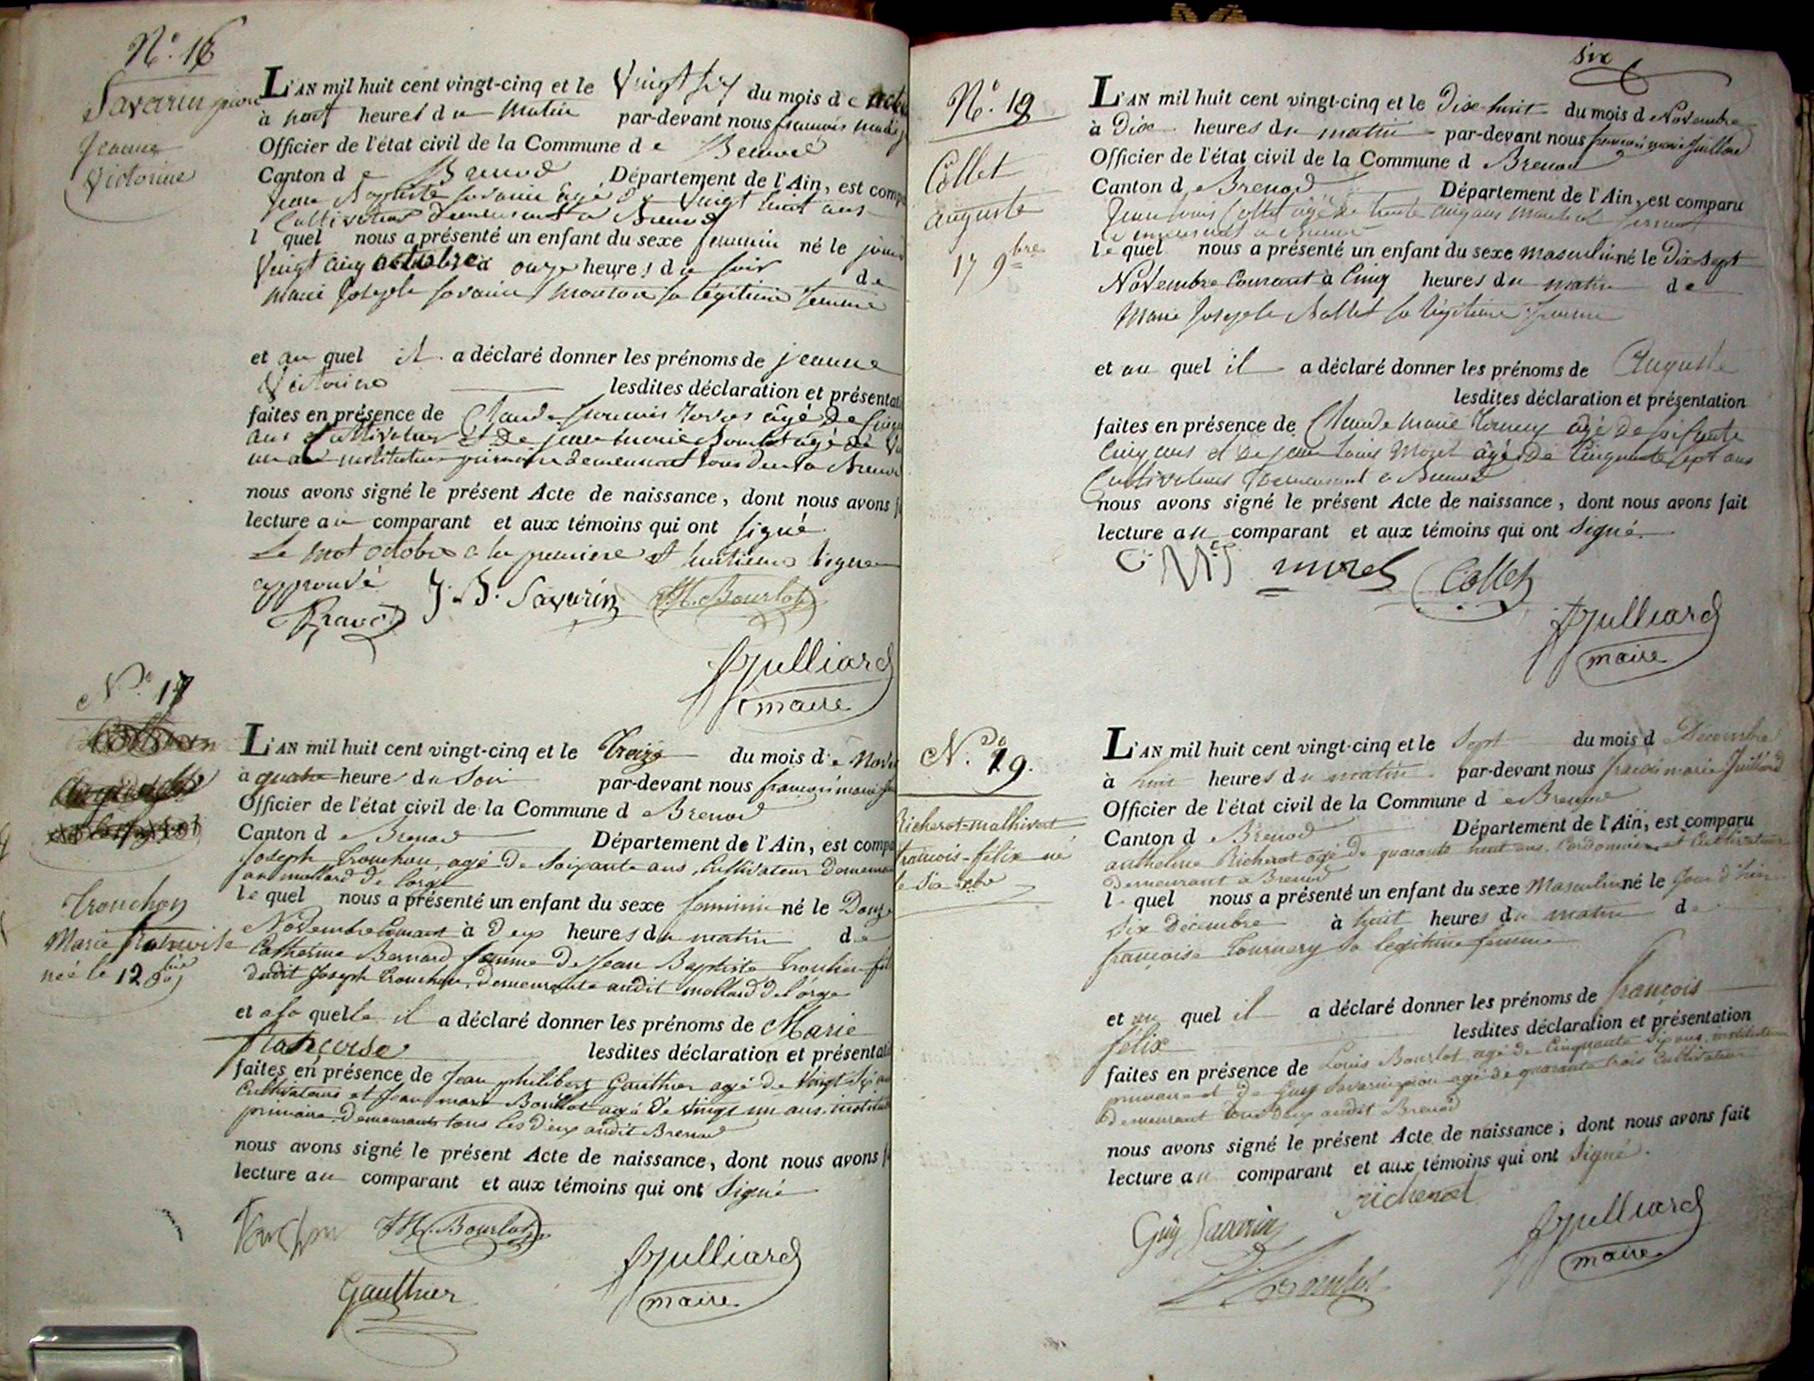 N.° 16
Savarin pion
Jeanne
Victorine
L'AN mil huit cent vingt-cinq et le Vingt six du mois de
à neuf heures du matin par-devant nous françois marie
Officier de l'état civil de la Commune de Brenod
Canton de Brenod Département de l'Ain, est comp
Jean Baptiste Savarin âgé de Vingt huit ans
Cultivateur demeurant à Brenod
l quel nous a présenté un enfant du sexe feminin né le jour
Vingt cinq octobre à onze heures du soir de
Marie Josephe Savarin Mouton sa légitime femme
et au quel il a déclaré donner les prénoms de jeanne
Victorine lesdites déclaration et présentati
faites en présence de Claude françois âgé de
ans Cultivateur et de jean marie Bourlot âgé de
un ans instituteur primaire demeurant tous deux à Brenod
nous avons signé le présent Acte de naissance, dont nous avons f
lecture au comparant et aux témoins qui ont signé
Le mot octobre a la premiere et huitieme ligne
approuvé J. B. Savarin JM. Bourlot
Ravet
fJulliard
maire
N.° 17
Tronchon
Marie françoise
née le 12 9bre
L'AN mil huit cent vingt-cinq et le Treize du mois de Nove
à quatre heure du Soir par-devant nous françois marie
Officier de l'état civil de la Commune d e Brenod
Canton d e Brenod Département de l'Ain, est compa
Joseph Tronchon, agé de Soixante ans, Cultivateur demeurant
au mollard de l'orge
le quel nous a présenté un enfant du sexe feminin né le Douze
Novembre Courant à Deux heures du matin de
Catherine Bernard femme de Jean Baptiste Tronchon fils
dudit Joseph Tronchon, demeurante audit mollard de l'orge
et a la quelle il a déclaré donner les prénoms de Marie
françoise lesdites déclaration et présentati
faites en présence de Jean philibert Gauthier agé de Vingt Six ans
Cultivateur et Jean marie Bourlot agé de Vingt un ans instituteur
primaire demeurants tous les deux audit Brenod
nous avons signé le présent Acte de naissance, dont nous avons f
lecture au comparant et aux témoins qui ont Signé
Tronchon JM. Bourlot
fJulliard
Gauthier maire
six
N.° 18
Collet
auguste
17 9bre
L'AN mil huit cent vingt-cinq et le Dix-huit du mois de Novembre
à Dix heures du matin par-devant nous françois marie Juilliard
Officier de l'état civil de la Commune d e Brenod
Canton d e Brenod Département de l'Ain, est comparu
Jean Louis Collet âgé de trente cinq ans marechal ferrant
demeurant a Brenod
le quel nous a présenté un enfant du sexe masculin né le Dix sept
Novembre Courant à Cinq heures du matin de
Marie Josephe Ballet sa légitime femme
et au quel il a déclaré donner les prénoms de Auguste
lesdites déclaration et présentation
faites en présence de Claude marie âgé de soixante
Cinq ans et de jean Louis Morel âgé de Cinquante sept ans
Cultivateurs Demeurant a Brenod
nous avons signé le présent Acte de naissance, dont nous avons fait
lecture au comparant et aux témoins qui ont Signé.
morel Collet
fJulliard
maire
N.° 19.
Richerot-malhivert
francois-félix né
le six xbre
L'AN mil huit cent vingt-cinq et le Sept du mois d Décembre
à huit heures du matin par-devant nous françois marie Juilliard
Officier de l'état civil de la Commune d e Brenod
Canton d e Brenod Département de l'Ain, est comparu
anthelme Richerot agé de quarante huit ans, Cordonnier et Cultivateur
demeurant a Brenod
l quel nous a présenté un enfant du sexe Masculin né le Jour d'hier
Six décembre à huit heures du matin de
françoise Tournery sa legitime femme
et au quel il a déclaré donner les prénoms de françois
félix lesdites déclaration et présentation
faites en présence de Louis Bourlot agé de Cinquante Six ans, instituteur
primaire et de Guy Savarin pion agé de quarante trois Cultivateur
demeurant tous deux audit Brenod
nous avons signé le présent Acte de naissance; dont nous avons fait
lecture au comparant et aux témoins qui ont Signé.
richerot
Guy Savarin fJulliard
maire
L Bourlot